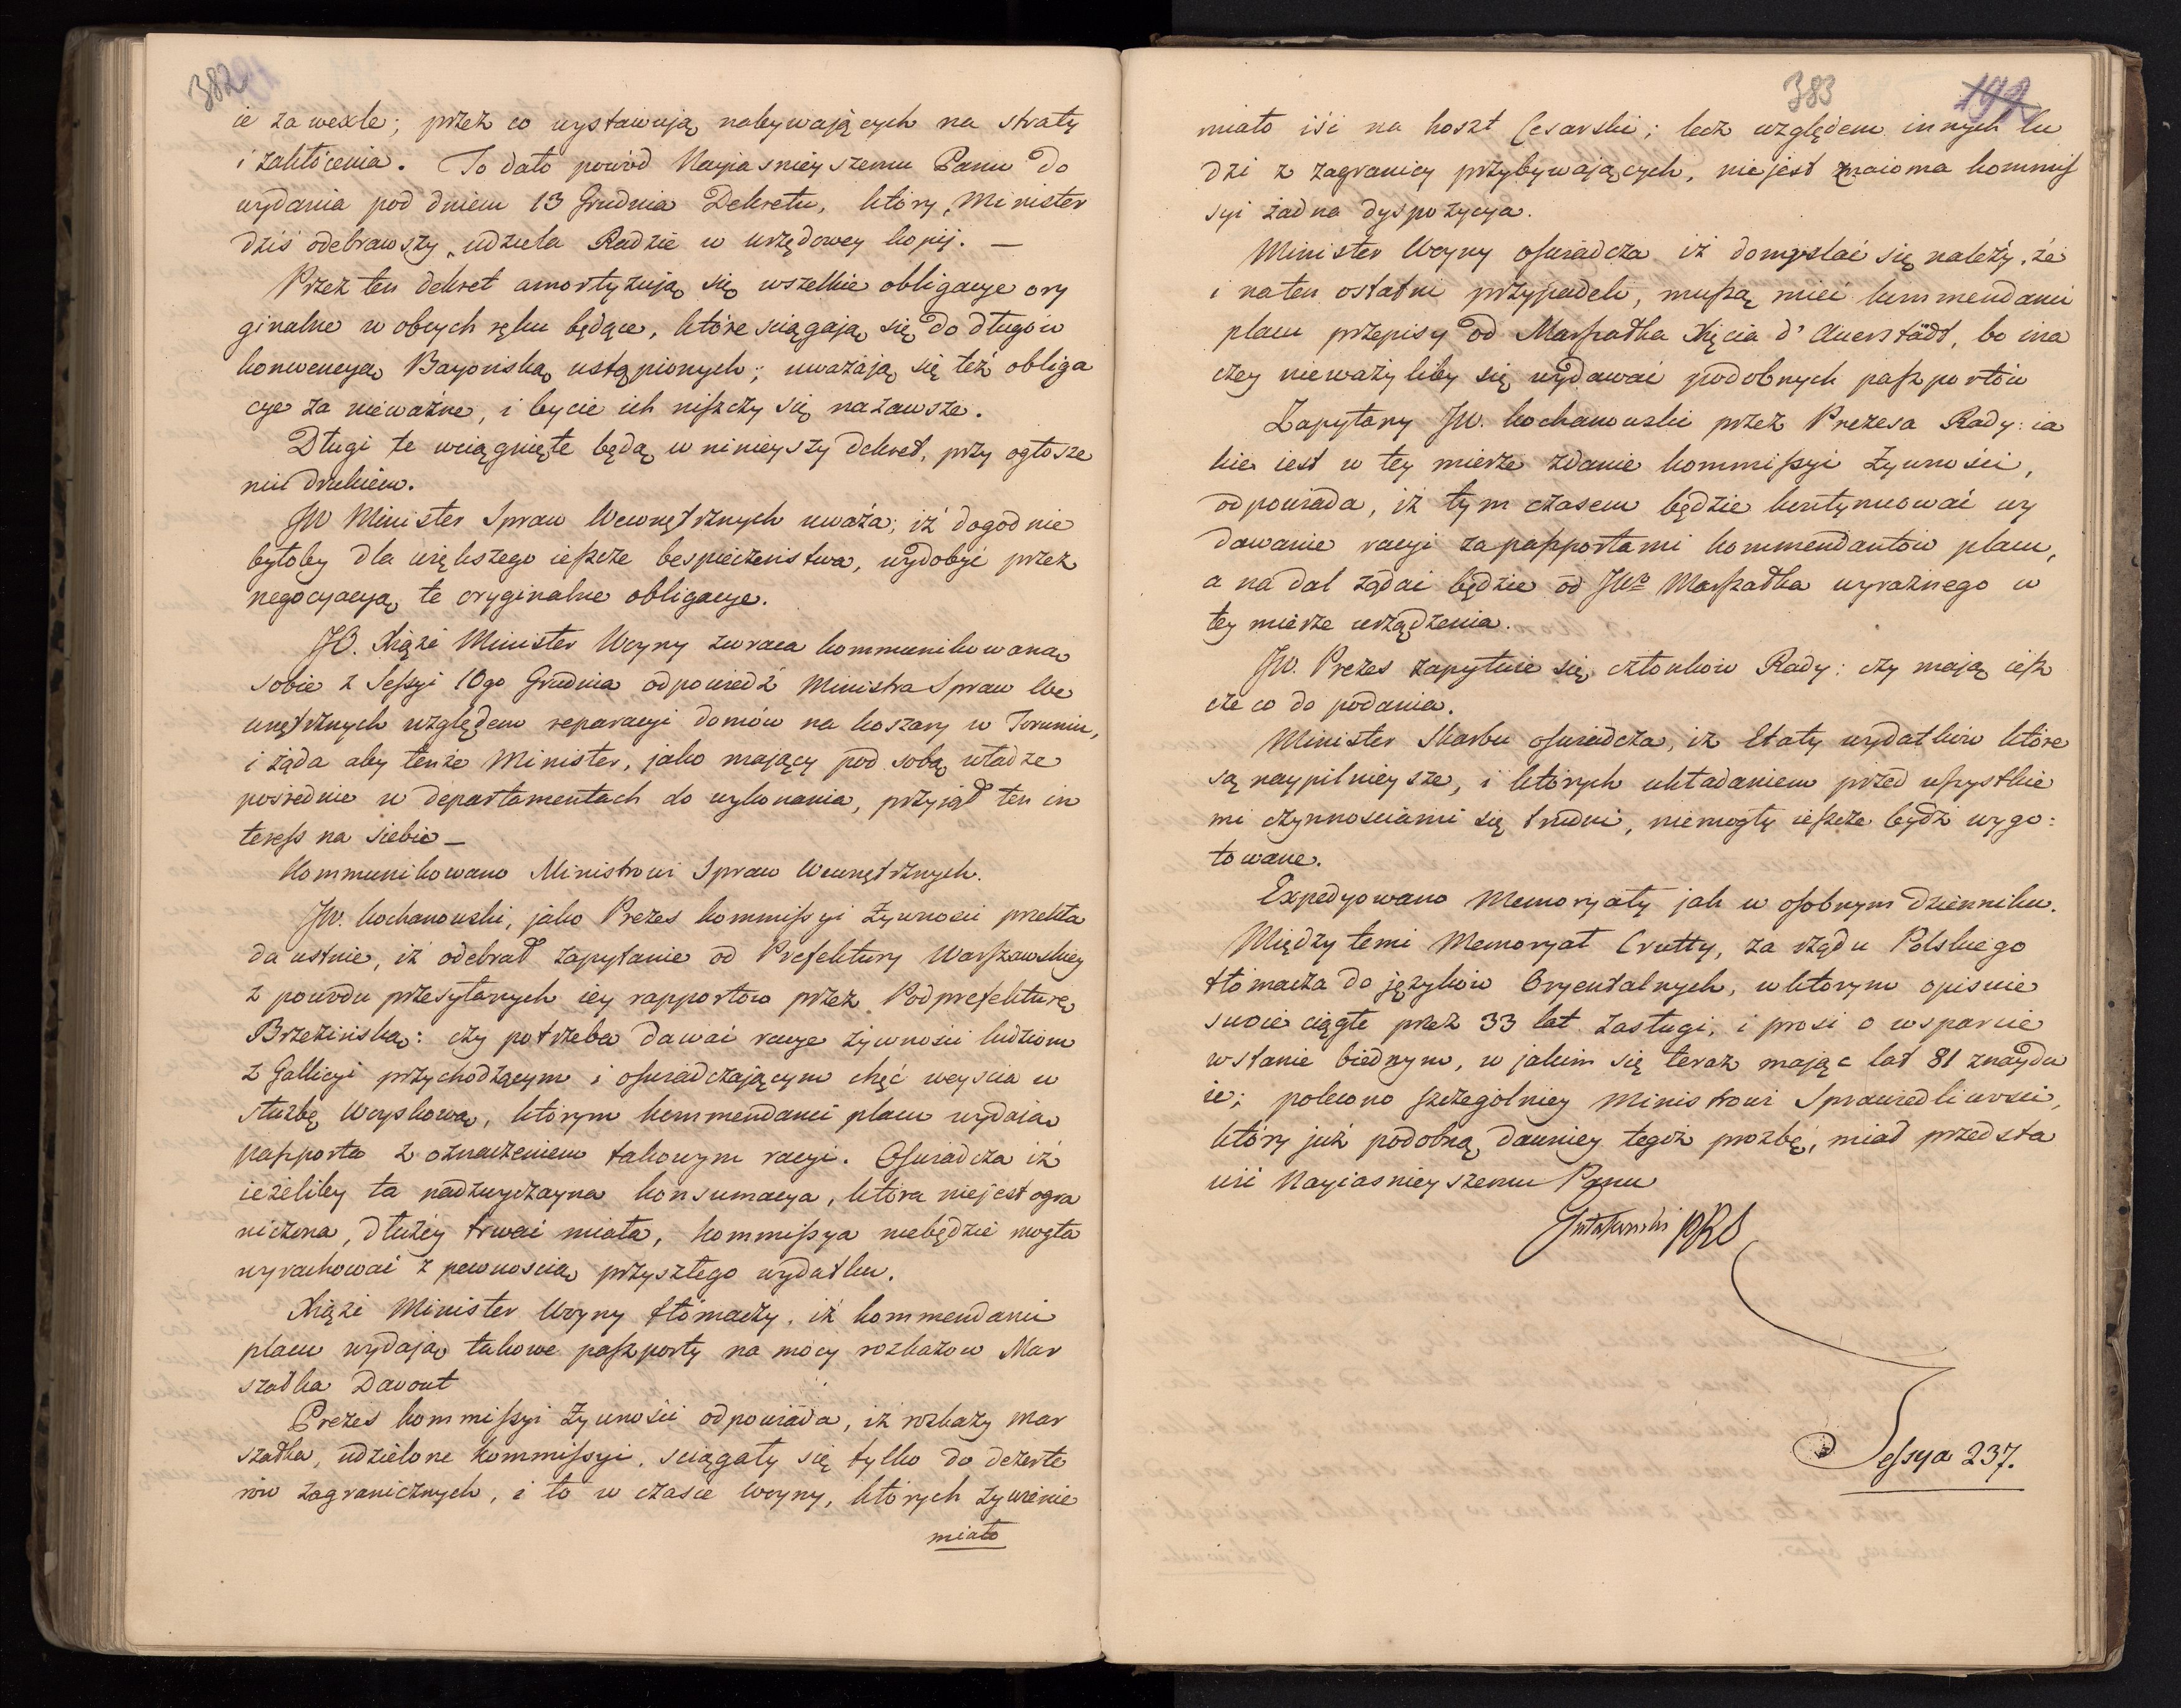 382
ie za wexle; przez co wystawują nabywających na straty
i zakłócenia. To dało powód Nayiasnieyszemu Panu do
wydania pod dniem 13 Grudnia Dekretu, który, Minister
dziś odebrawszy, udziela Radzie w urzędowey kopij. —
Przez ten dekret amortyzują się wszelkie obligacye ory
ginalne w obcych ręku będące, które sciągają się do długów
konwencyą Bayońską ustąpionych; uważają się też obliga
cye za nieważne, i bycie ich niszczy się nazawsze.
Długi te wciągnięte będą w ninieyszy dekret, przy ogłosze
niu drukiem.
JW Minister Spraw Wewnętrznych uważa; iż dogodnie
byłoby dla większego ieszcze bespieczeństwa, wydobyć przez
negocyacyą te oryginalne obligacye.
JO. Xiąże Minister Woyny zwraca kommunikowaną
sobie z Sessyi 10go Grudnia odpowiedź Ministra Spraw We
wnętrznych względem reparacyi domów na koszary w Toruniu,
i żąda aby tenże Minister, jako mający pod sobą władze
posrednie w departamentach do wykonania, przyjął ten in
teress na siebie —
Kommunikowano Ministrowi Spraw Wewnętrznych.
JW. Kochanowski, jako Prezes kommissyi Żywności przekła
da ustnie, iż odebrał zapytanie od Prefektury Warszawskiey
z powodu przesyłanych iey rapportów przez Podprefekturę
Brzezińską: czy potrzeba dawać racye żywności ludziom
z Gallicyi przychodzącym i oswiadczającym chęć weyscia w
służbę Woyskową, którym kommendanci placu wydaią
passporta z oznaczeniem takowym racyi. Oswiadcza iż
ieżeliby ta nadzwyczayna konsumacya, która niejest ogra
niczona, dłużéy trwać miała, kommissya niebędzie mogła
wyrachować z pewnoscią przyszłego wydatku.
Xiąże Minister Woyny tłómaczy, iż kommendanci
placu wydają takowe paszporty na mocy rozkazow Mar
szałka Davout
Prezes kommissyi Żywności odpowiada, iż rozkazy Mar
szałka, udzielone kommissyi, sciągały się tylko do dezerte
rów zagranicznych, i to w czasie Woyny, których żywienie
miało
383
192
miało iść na koszt Cesarski; lecz względem innych lu
dzi z zagranicy przybywających, niejest znaioma kommis
syi żadna dyspozycya.
Minister Woyny oswiadcza iż domyslać się należy, że
i naten ostatni przypadek, muszą mieć kommendanci
placu przepisy od Marszałka Xięcia d'Auerstädt, bo ina
czey nieważyliby się wydawać podobnych paszportów
Zapytany JW. Kochanowski przez Prezesa Rady: ia
kie iest w tey mierze zdanie kommissyi Żywności,
odpowiada, iż tym czasem będzie kontynuować wy
dawanie racyi za passportami kommendantów placu,
a na dal żądać będzie od JWo Marszałka wyraźnego w
tey mierze urządzenia.
JW. Prezes zapytuie się członków Rady: czy mają iesz
cze co do podania.
Minister Skarbu oswiadcza, iż Etaty wydatków które
są naypilnieysze, i których układaniem przed wszystkie
mi czynnościami się trudni, niemogły ieszcze bydź wygo:
towane.
Expedyowano Memoryały jak w osobnym Dzienniku.
Między temi Memoryał Crutty, za rządu Polskiego
tłómacza do języków Oryentalnych, w którym opisuie
swoie ciągłe przez 33 lat zasługi, i prosi o wsparcie
w stanie biednym, w jakim się teraz mając lat 81 znaydu
ie; polecono szczególniey Ministrowi Sprawiedliwości,
który już podobną dawniey tegoż prozbę, miał przedsta
wić Nayiasnieyszemu Panu
Gutakowski PRS
Sessya 237.